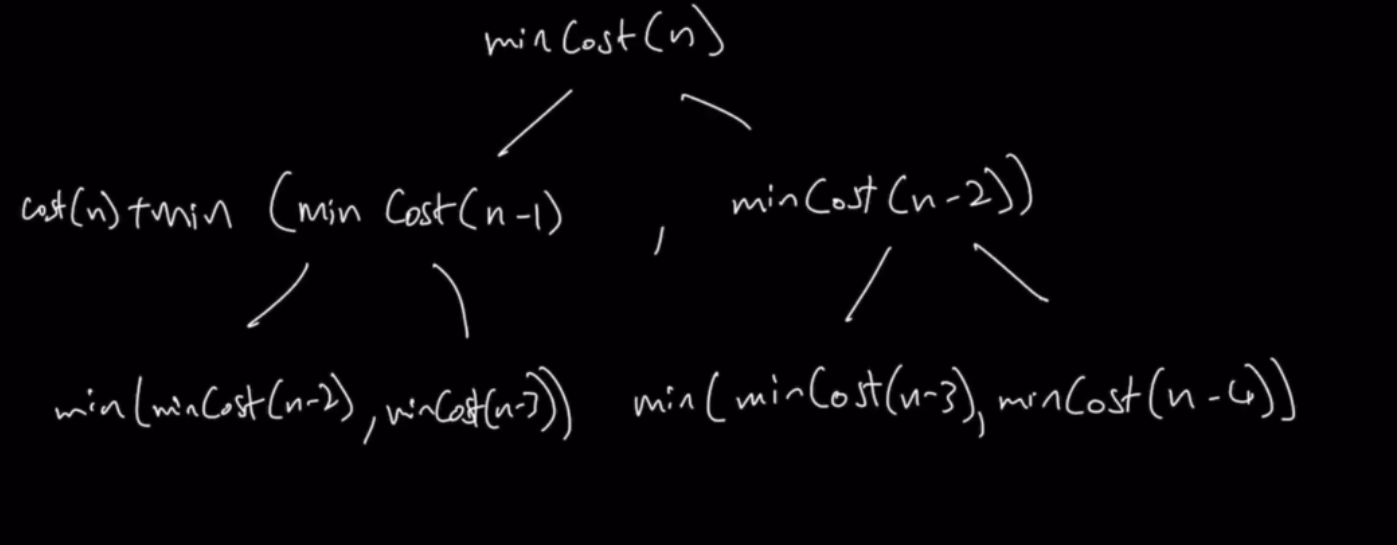 minCost(n)
cost(n)+min (min Cost(n-1) , minCost(n-2))
min(minCost(n-2), minCost(n-3)) min(minCost(n-3), minCost(n-4))